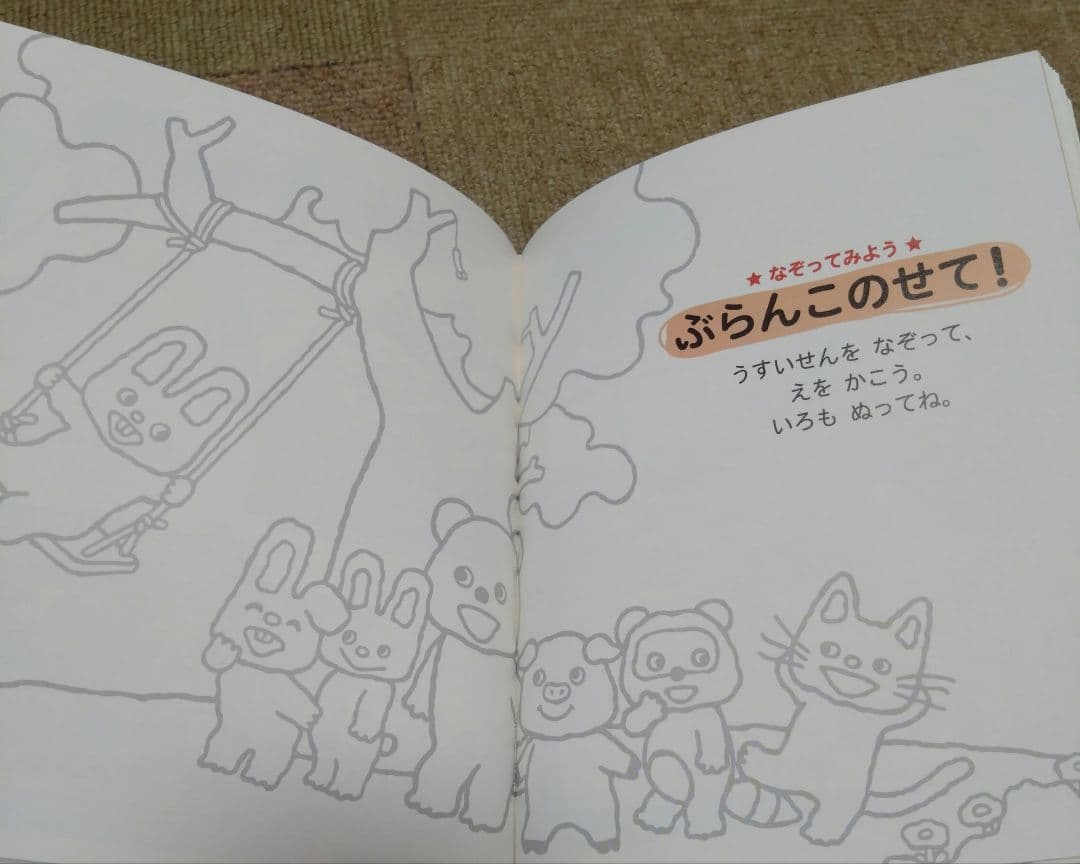 ★ なぞってみよう ★
ぶらんこのせて!
うすいせんを なぞって、
えを かこう。
いろも ぬってね。